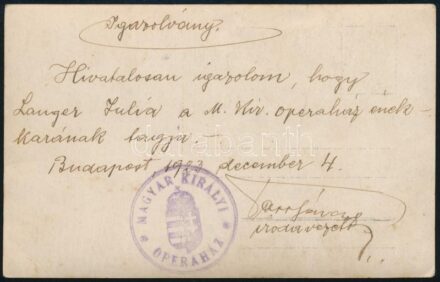 Igazolvány.
Hivatalosan igazolom, hogy
Langer Julia a M. Kir. operaház ének-
karának tagja. —
Budapest, 1923 december 4.
irodavezető
MAGYAR KIRÁLYI
OPERAHÁZ
darabanth